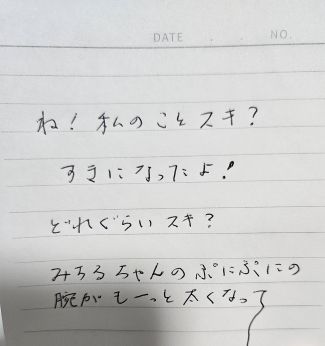 DATE . . NO.
ね! 私のことスキ?
すきになったよ!
どれぐらいスキ?
みちるちゃんのぷにぷにの
腕がもーっと太くなって